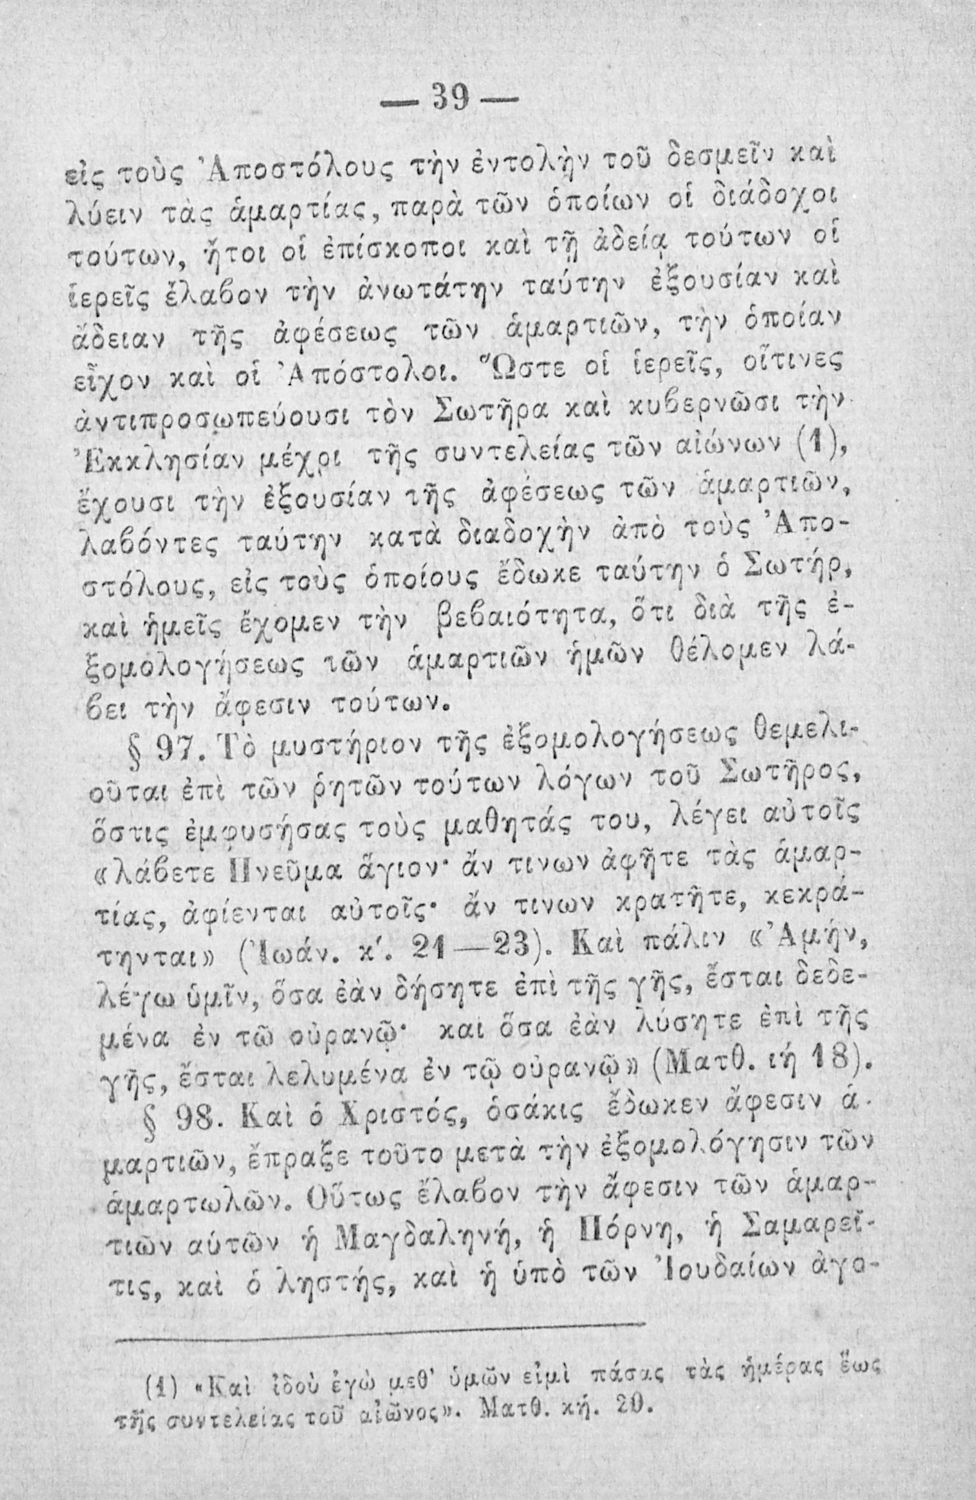 — 39 —
εἰς τοὺς Ἀποστόλους τὴν ἐντολὴν τοῦ δεσμεῖν καὶ
λύειν τὰς ἁμαρτίας, παρὰ τῶν ὁποίων οἱ διάδοχοι
τούτων, ἤτοι οἱ ἐπίσκοποι καὶ τῇ ἀδείᾳ τούτων οἱ
ἱερεῖς ἔλαβον τὴν ἀνωτάτην ταύτην ἐξουσίαν καὶ
ἄδειαν τῆς ἀφέσεως τῶν ἁμαρτιῶν, τὴν ὁποίαν
εἶχον καὶ οἱ Ἀπόστολοι. Ὥστε οἱ ἱερεῖς, οἵτινες
ἀντιπροσωπεύουσι τὸν Σωτῆρα καὶ κυβερνῶσι τὴν
Ἐκκλησίαν μέχρι τῆς συντελείας τῶν αἰώνων (1),
ἔχουσι τὴν ἐξουσίαν τῆς ἀφέσεως τῶν ἁμαρτιῶν,
λαβόντες ταύτην κατὰ διαδοχὴν ἀπὸ τοὺς Ἀπο-
στόλους, εἰς τοὺς ὁποίους ἔδωκε ταύτην ὁ Σωτήρ,
καὶ ἡμεῖς ἔχομεν τὴν βεβαιότητα, ὅτι διὰ τῆς ἐ-
ξομολογήσεως τῶν ἁμαρτιῶν ἡμῶν θέλομεν λά-
βει τὴν ἄφεσιν τούτων.
§ 97. Τὸ μυστήριον τῆς ἐξομολογήσεως θεμελι-
οῦται ἐπὶ τῶν ῥητῶν τούτων λόγων τοῦ Σωτῆρος,
ὅστις ἐμφυσήσας τοὺς μαθητάς του, λέγει αὐτοῖς
«λάβετε Πνεῦμα ἅγιον· ἄν τινων ἀφῆτε τὰς ἁμαρ-
τίας, ἀφίενται αὐτοῖς· ἄν τινων κρατῆτε, κεκρά-
τηνται» (Ἰωάν. κ΄. 21—23). Καὶ πάλιν «Ἀμήν,
λέγω ὑμῖν, ὅσα ἐὰν δήσητε ἐπὶ τῆς γῆς, ἔσται δεδε-
μένα ἐν τῶ οὐρανῷ· καὶ ὅσα ἐὰν λύσητε ἐπὶ τῆς
γῆς, ἔσται λελυμένα ἐν τῷ οὐρανῷ» (Ματθ. ιή 18).
§ 98. Καὶ ὁ Χριστός, ὁσάκις ἔδωκεν ἄφεσιν ἁ-
μαρτιῶν, ἔπραξε τοῦτο μετὰ τὴν ἐξομολόγησιν τῶν
ἁμαρτωλῶν. Οὕτως ἔλαβον τὴν ἄφεσιν τῶν ἁμαρ-
τιῶν αὑτῶν ἡ Μαγδαληνή, ἡ Πόρνη, ἡ Σαμαρεῖ-
τις, καὶ ὁ ληστής, καὶ ἡ ὑπὸ τῶν Ἰουδαίων ἀγο-
(1) «Καὶ ἰδοὺ ἐγὼ μεθ' ὑμῶν εἰμὶ πάσας τὰς ἡμέρας ἕως
τῆς συντελείας τοῦ αἰῶνος». Ματθ. κή. 20.